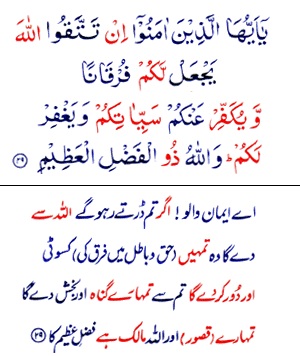 يٰٓاَيُّهَا الَّذِيْنَ اٰمَنُوْٓا اِنْ تَتَّقُوا اللّٰهَ
يَجْعَلْ لَّكُمْ فُرْقَانًا
وَّ يُكَفِّرْ عَنْكُمْ سَيِّاٰتِكُمْ وَيَغْفِرْ
لَكُمْ ؕ وَاللّٰهُ ذُو الْفَضْلِ الْعَظِيْمِ ﴿۲۹﴾
اے ایمان والو! اگر تم ڈرتے رہو گے اللہ سے
دے گا وہ تمہیں (حق و باطل میں فرق کی) کسوٹی
اور دُور کر دے گا تم سے تمہارے گناہ اور بخش دے گا
تمہارے (قصور) اور اللہ مالک ہے فضلِ عظیم کا ﴿۲۹﴾